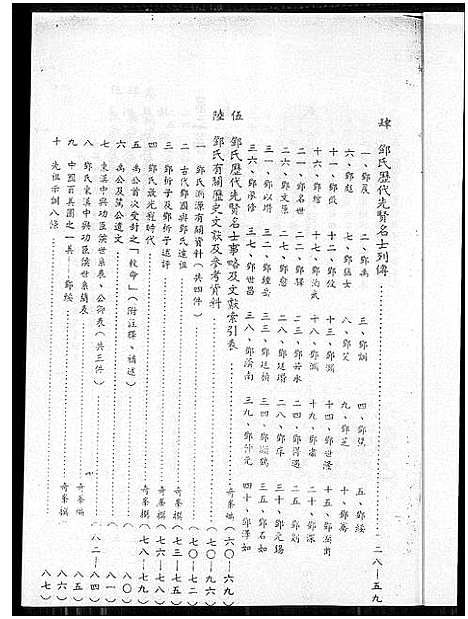 肆 鄧氏歷代先賢名士列傳……二八—五九
一、鄧 二、鄧禹 三、鄧訓 四、鄧 五、鄧綏
六、鄧彪 七、鄧 八、鄧艾 九、鄧芝 十、鄧騫
十一、鄧攸 十二、鄧 十三、鄧 十四、鄧世 十五、鄧
十六、鄧綰 十七、鄧洵武 十八、鄧 十九、鄧肅 二十、鄧深
二一、鄧名世 二二、鄧驛 二三、鄧若水 二四、鄧得遇 二五、鄧剡
二六、鄧文原 二七、鄧愈 二八、鄧廷瓚 二八、鄧庠 二九、鄧元錫
三一、鄧以讚 三二、鄧鍾岳 三三、鄧廷楨 三四、鄧 三五、鄧石如
三六、鄧承修 三七、鄧世昌 三八、鄧蔭南 三九、鄧仲元 四十、鄧澤如
伍 鄧氏歷代先賢名士事略及文獻索引表……奇峯編（六〇—六九）
陸 鄧氏有關歷史文獻及參考資料……（七〇—九六）
一 鄧氏淵源有關資料（共四件）……（七〇—七二）
二 古代鄧國與鄧氏遠祖……奇峯撰（七三—七五）
三 鄧析子及鄧析子述評……奇峯撰（七六—七八）
四 鄧氏啟光輝時代……奇峯撰（七八—七九）
五 禹公首次受封之「敕命」（附註釋、補述）……（八〇）
六 禹公及篤公遺文……（八一）
七 東漢中興功臣侯世系表、公卿表（共三件）……（八二—八四）
八 鄧氏東漢中興功臣侯世系簡表……奇峯編（八五）
九 中國百美圖之一美——鄧綏……奇峯撰（八六）
十 先祖示訓八條……（八七）